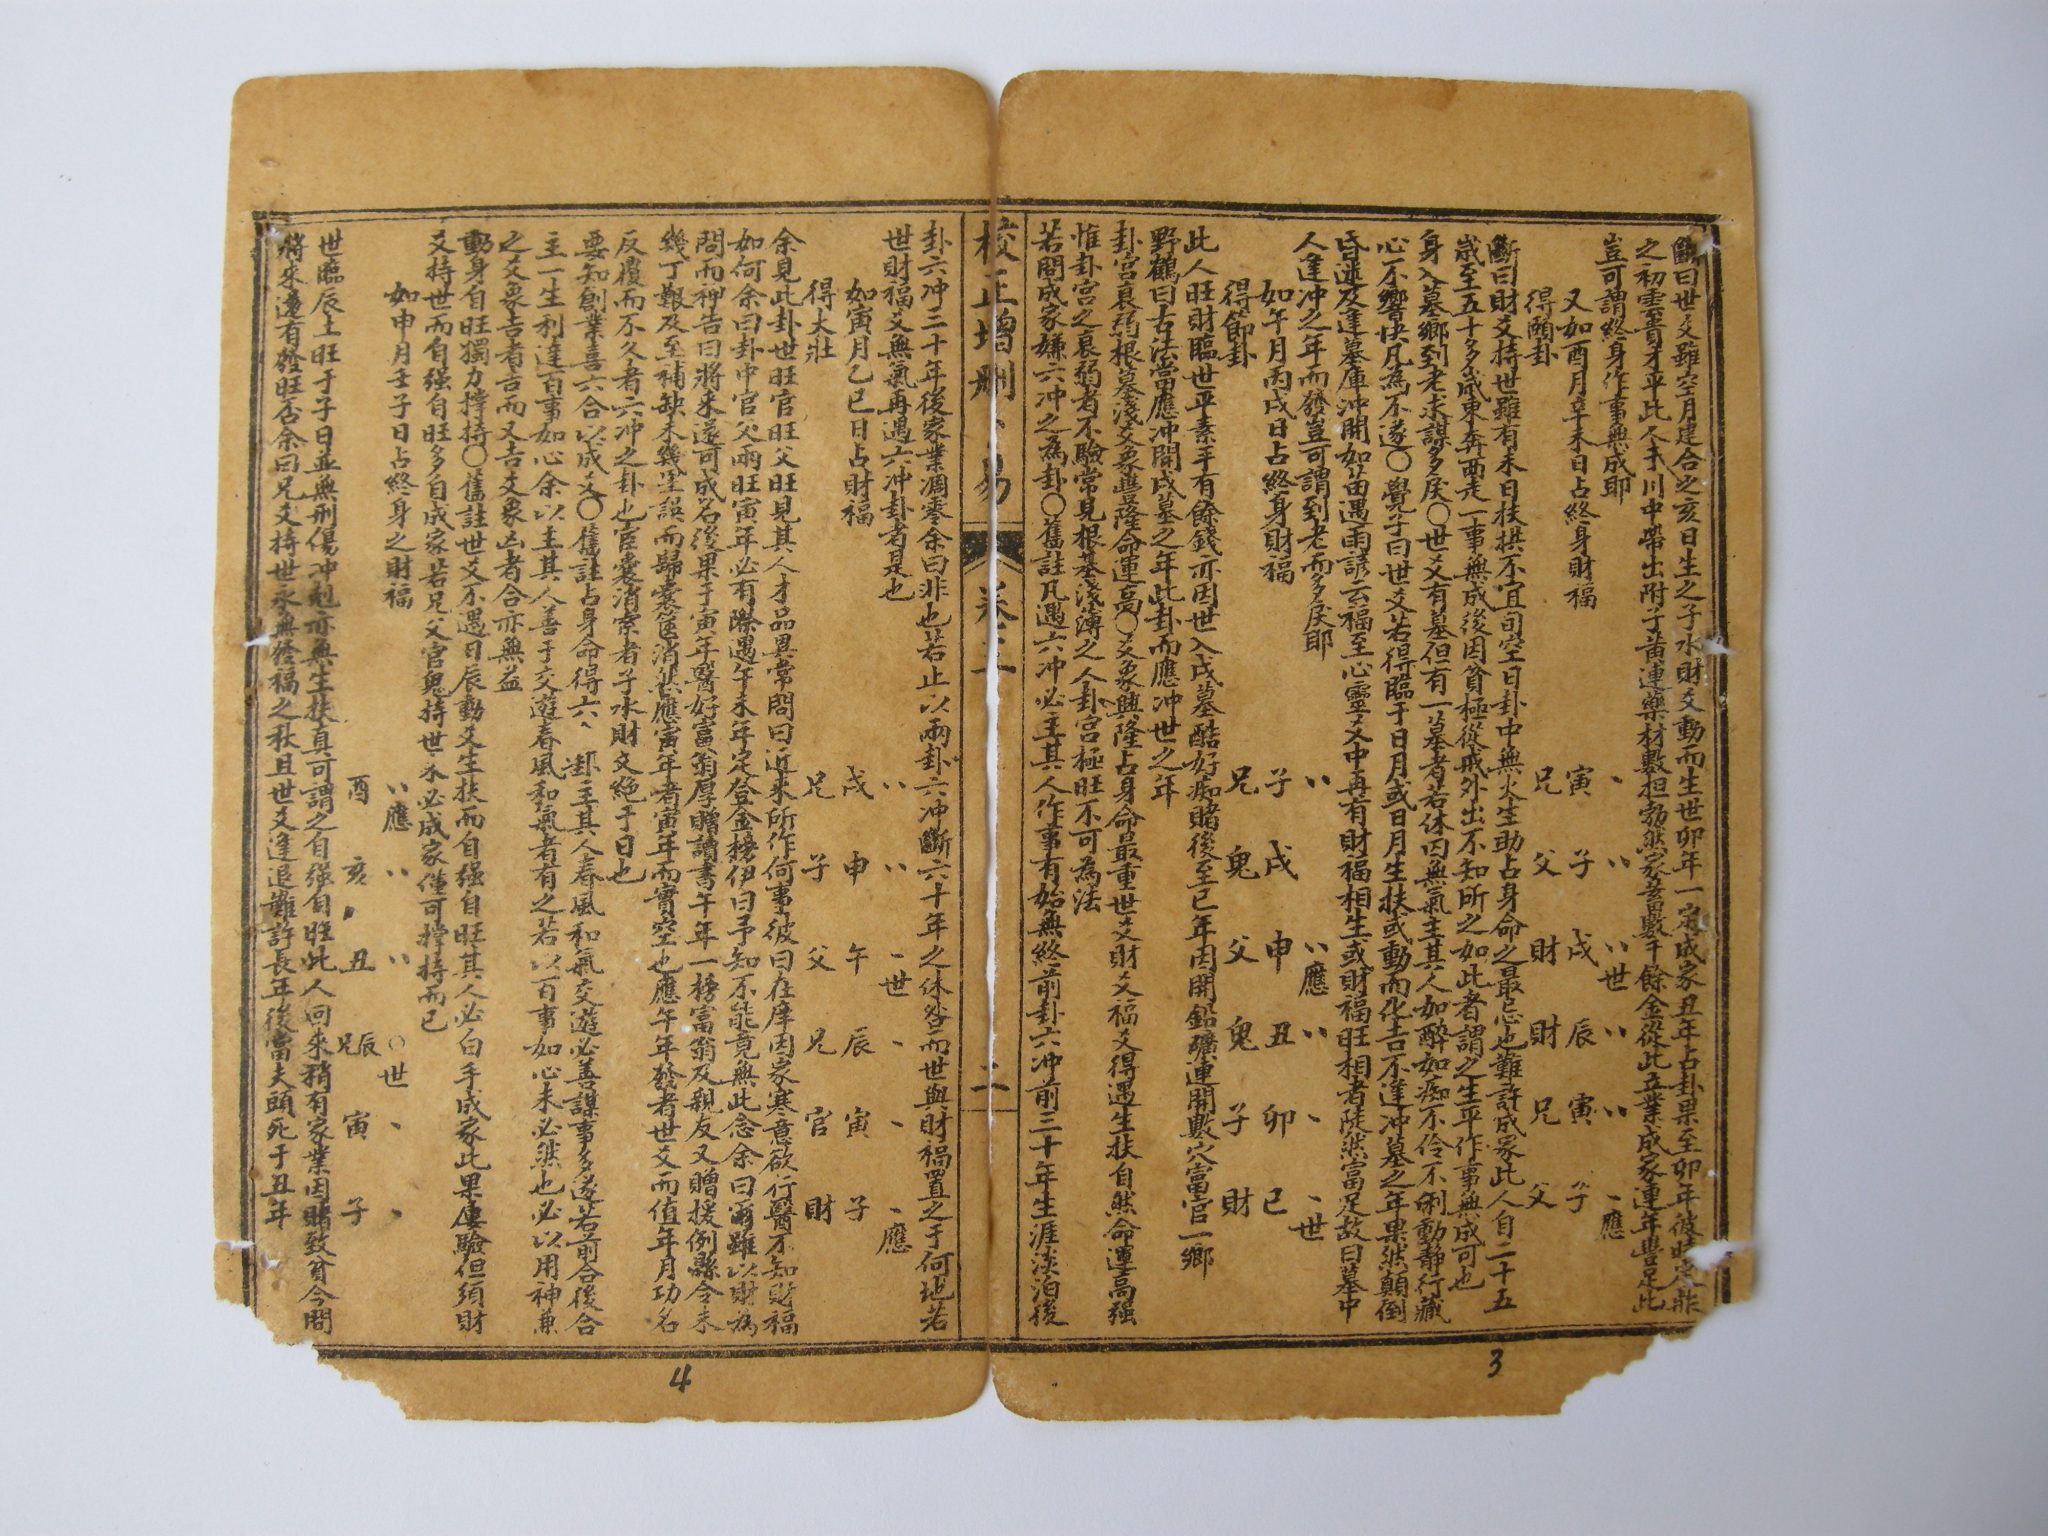 斷曰世爻雖空月建合之亥日生之子水財爻動而生世卯年一定成家丑年占卦果至卯年彼時
之初雲貴才平此人于川中帶出附子黃連藥材數担勃然家資數千餘金從此立業成家連年豐足此
豈可謂終身作事無成耶
又如酉月辛未日占終身財福
得頤卦
寅 子 戌 辰 寅 子
兄 父 財 財 兄 父
世 應
斷曰財爻持世雖有未日扶拱不宜旬空日卦中無火生助占身命之最忌也難許成家此人自二十五
歲至五十多歲東奔西走一事無成後因貧極從戎外出不知所之如此者謂之生平作事無成可也
身入墓鄉到老求謀多戾○世爻有墓但有一墓者若休囚無氣主其人如醉如痴不伶不俐動靜行藏
心不響快凡為不遂○覺子曰世爻若得臨于日月或日月生扶或動而化吉不逢冲墓之年果然顛倒
昏迷及逢墓庫冲開如苗遇雨諺云福至心靈爻中再有財福相生或財福旺相者陡然富足故曰墓中
人逢冲之年而發豈可謂到老而多戾耶
如午月丙戌日占終身財福
得節卦
子 戌 申 丑 卯 巳
兄 鬼 父 鬼 子 財
應 世
此人旺財臨世平素平有餘錢亦因世入戌墓酷好痴賭後至巳年因開鉛礦連開數穴富官一鄉
野鶴曰古法當應冲開戌墓之年此卦而應冲世之年
卦宮衰弱根基淺爻象豐隆命運高○爻象興隆占身命最重世爻財爻福爻得遇生扶自然命運高強
惟卦宮之衰弱者不驗常見根基淺薄之人卦宮極旺不可為法
若問成家嫌六冲之為卦○舊註凡遇六冲必主其人作事有始無終前卦六冲前三十年生涯淡泊後
校正增刪
易
二
卦六冲三十年後家業凋零余曰非也若止以兩卦六冲斷六十年之休咎而世與財福置之于何地若
世財福爻無氣再遇六冲卦者是也
如寅月乙巳日占財福
得大壯
戌 申 午 辰 寅 子
兄 子 父 兄 官 財
世 應
余見此卦世旺官旺父旺見其人才品異常問曰近來所作何事彼曰在庠因家寒意欲行醫不知財福
如何余曰卦中官父兩旺寅年必有際遇午未年定登金榜伊曰予知不能竟無此念余曰爾雖以財為
問而神告曰將來遂可成名後果于寅年醫好富翁厚贈讀書午年一榜富翁及親友又贈援例縣令未
幾丁艱及至補缺未幾詿誤而歸囊篋消然應寅年者寅年而實空也應午年發者世爻而值年月功名
反覆而不久者六冲之卦也宦囊消索者子水財爻絕于日也
要知創業喜六合以成爻○舊註占身命得六 卦主其人春風和氣交遊必善謀事多遂若前合後合
主一生利達百事如心余以主其人善于交遊春風和氣者有之若以百事如心未必然也必以用神兼
之爻象吉者吉而又吉爻象凶者合亦無益
動身自旺獨力撑持○舊註世爻不遇日辰動爻生扶而自強自旺其人必白手成家此果屢驗但須財
爻持世而自強自旺多自成家若兄父官鬼持世未必成家僅可撑持而已
如申月壬子日占終身之財福
酉 亥 丑 辰 寅 子
兄
應 世
世臨辰土旺于子日並無刑傷冲尅亦無生扶真可謂之自強自旺此人向來稍有家業因賭致貧今問
將來還有發旺否余曰兄爻持世永無發福之秋且世爻逢退難許長年後當夫頭死于丑年
3
4